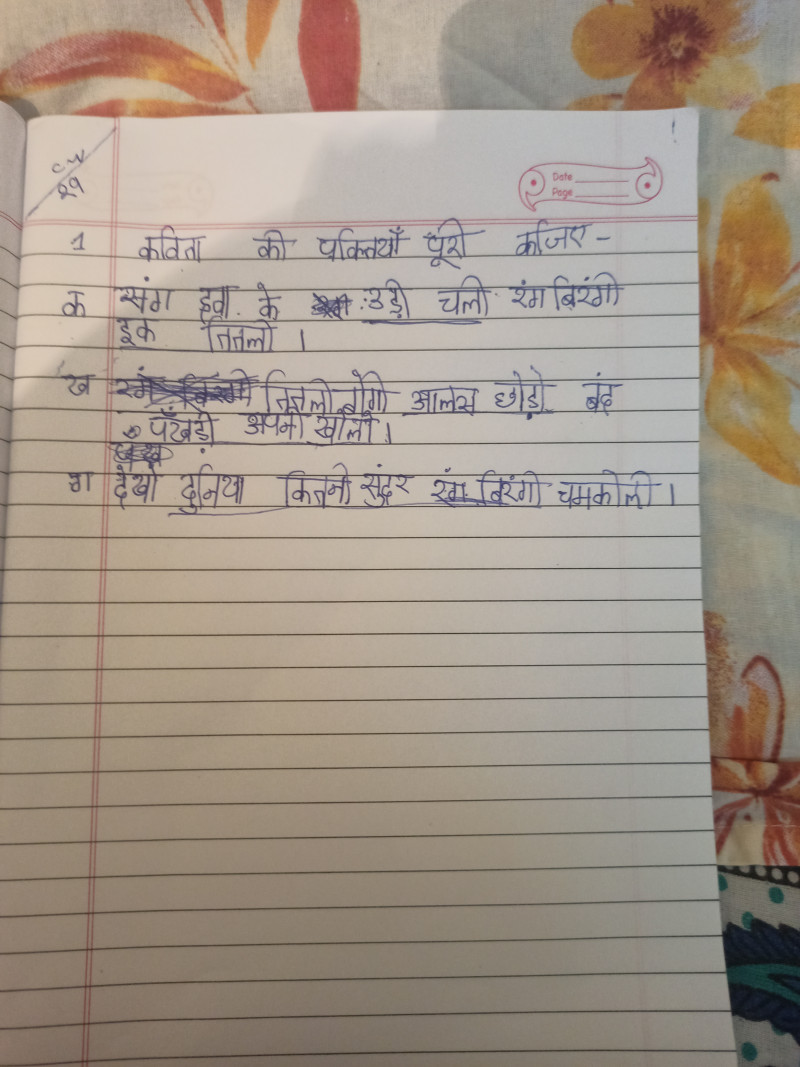 CW
29
Date
Page
1 कविता की पक्तियाँ पूरी कजिए -
क संग हवा के उड़ी चली रंग बिरंगी
इक तितली ।
ख तितली बोगी आलस छोड़ो बंद
पँखड़ी अपनी खोलो ।
ग देखो दुनिया कितनी सुंदर रंग बिरंगी चमकीली ।